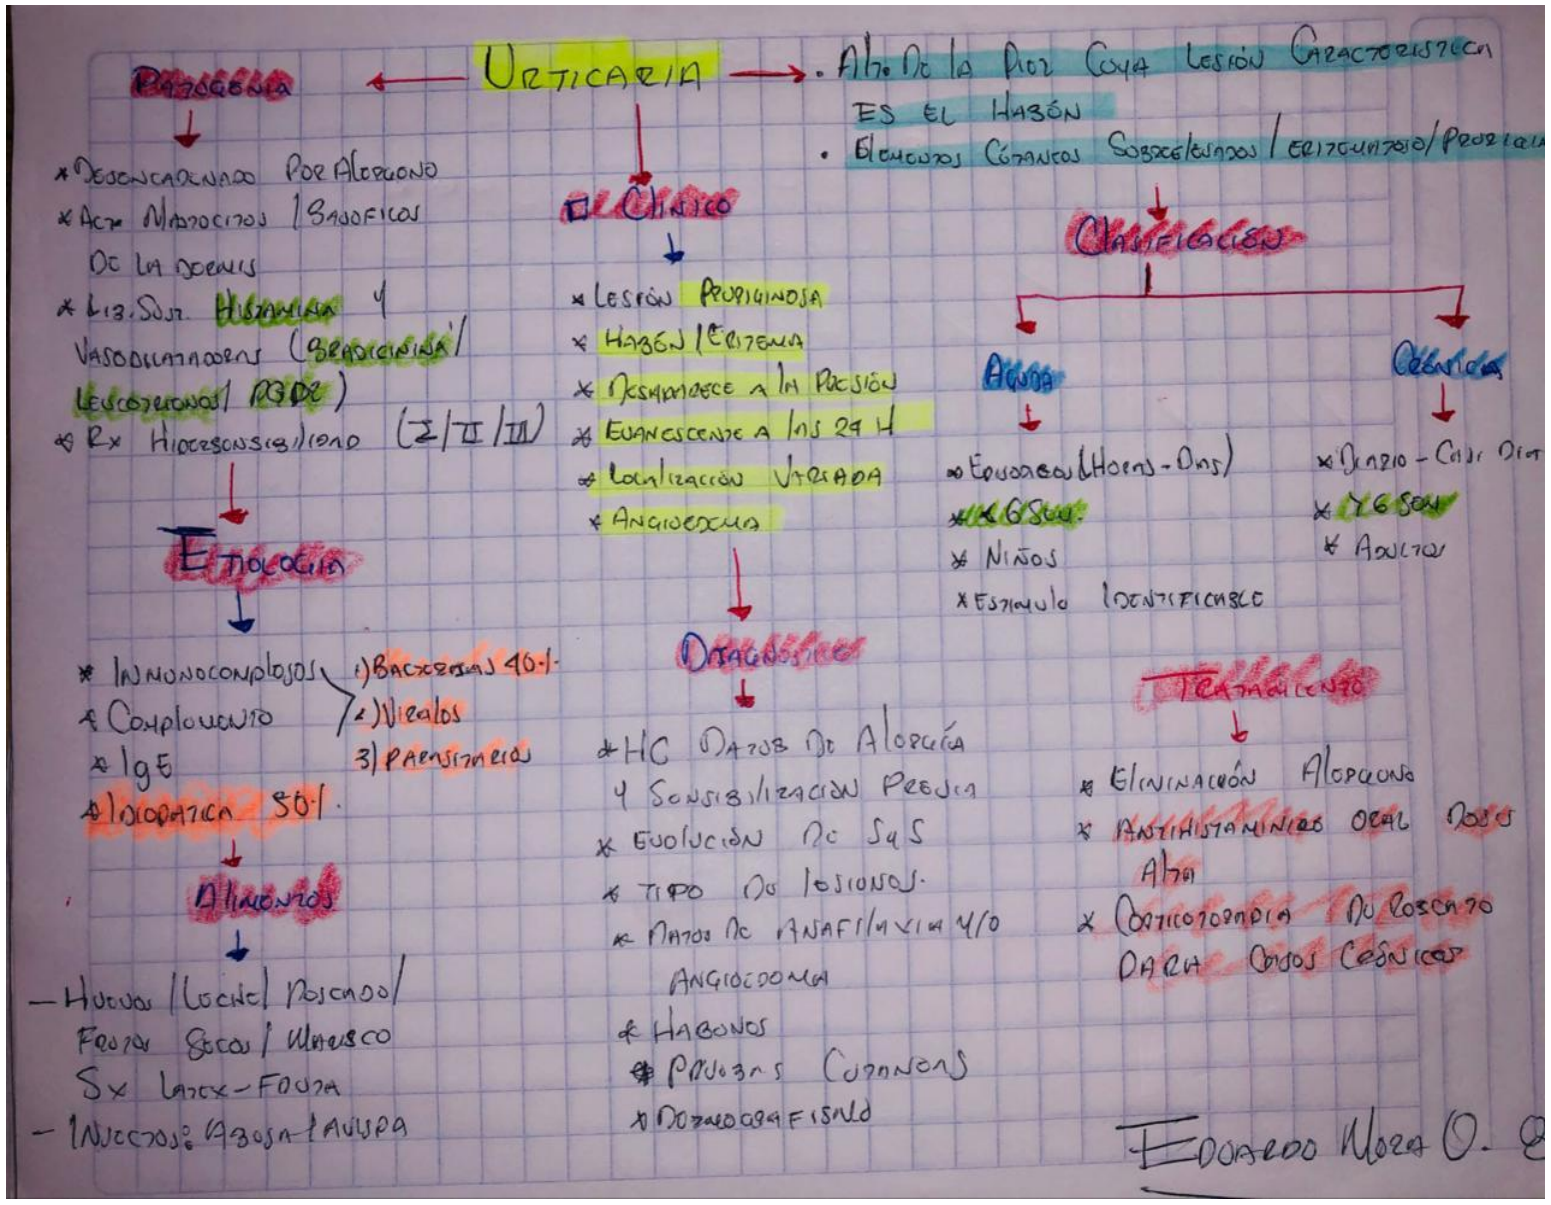 URTICARIA
. Alt. De la Piel Cuya Lesión Característica
ES EL HABÓN
. Elementos Cútaneos Sobreelevados / ERITEMATOSO / PRURIGIN
PATOGENIA
* DESENCADENADO POR ALERGENO
* ACTX MASTOCITOS / BASOFILOS
DE LA DERMIS
* LIB. SUST. HISTAMINA Y
VASODILATADORES (BRADICININA /
LEUCOTRIENOS / PGD2)
* RX HIPERSENSIBILIDAD (I / II / III)
ETIOLOGIA
* INMUNOCOMPLEJOS
* COMPLEMENTO
* IgE
* IDIOPATICA 50%.
1) BACTERIAS 40%.
2) VIRALES
3) PARASITARIOS
ALIMENTOS
- HUEVOS / LECHE / PESCADO /
FRUTOS SECOS / MARISCO
SX LATEX - FRUTA
- INSECTOS: ABEJA / AVISPA
CLÍNICO
* LESIÓN PRURIGINOSA
* HABÓN / ERITEMA
* DESAPARECE A LA PRESIÓN
* EVANESCENTE A LAS 24 H
* LOCALIZACIÓN VARIADA
* ANGIOEDEMA
DIAGNÓSTICO
* HC DATOS DE ALERGÍA
Y SENSIBILIZACIÓN PREVIA
* EVOLUCIÓN DE SyS
* TIPO DE LESIONES.
* DATOS DE ANAFILAXIA Y/O
ANGIOEDEMA
* HABONES
* PRUEBAS CUTANEAS
* DERMOGRAFISMO
CLASIFICACIÓN
AGUDA
* (HORAS - DIAS)
* < 6 SEM.
* NIÑOS
* ESTIMULO IDENTIFICABLE
CRÓNICA
* DIARIO - CASI DIAR
* > 6 SEM
* ADULTOS
TRATAMIENTO
* ELIMINACIÓN ALERGENO
* ANTIHISTAMINICO ORAL DOSIS
ALTA
* CORTICOTERAPIA DE RESCATE
PARA CASOS CRÓNICOS
EDUARDO MORA O.